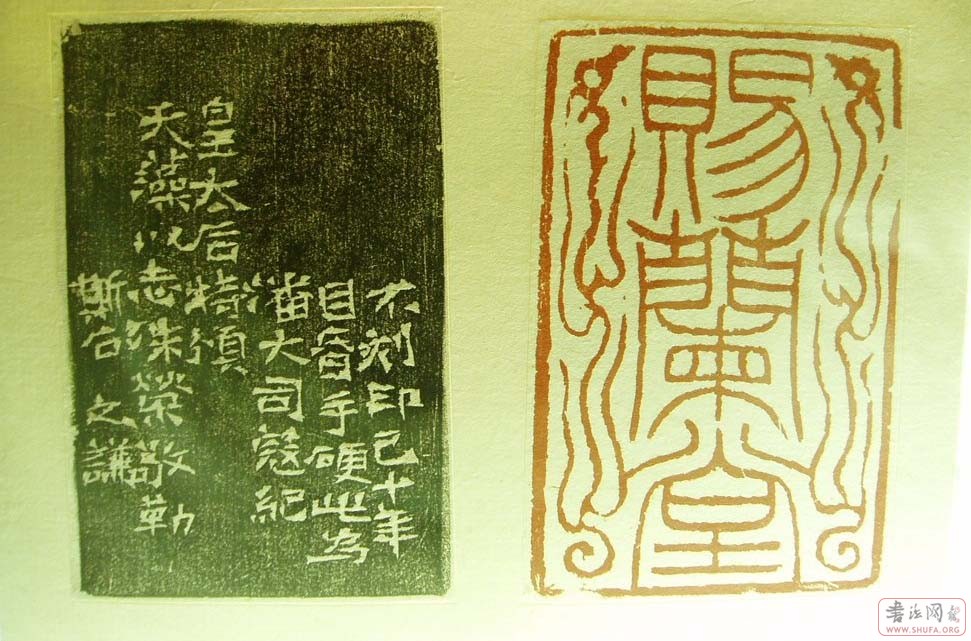 賜蘭堂
不刻印已十年
目昏手硬此為
潘大司寇紀
皇太后特頒
天藻以志殊榮敬勒
斯石之謙
书法网
WWW.SHUFA.ORG